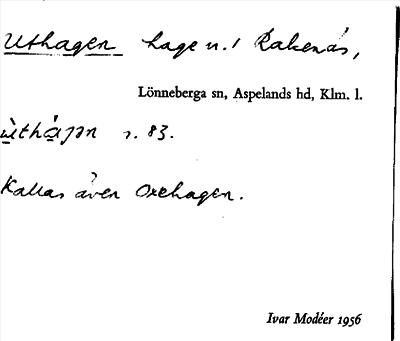 Uthagen hage n. 1 Rakenäs,
Lönneberga sn, Aspelands hd, Klm. l.
ùthàgən s. 83.
Kallas även Oxehagen.
Ivar Modéer 1956